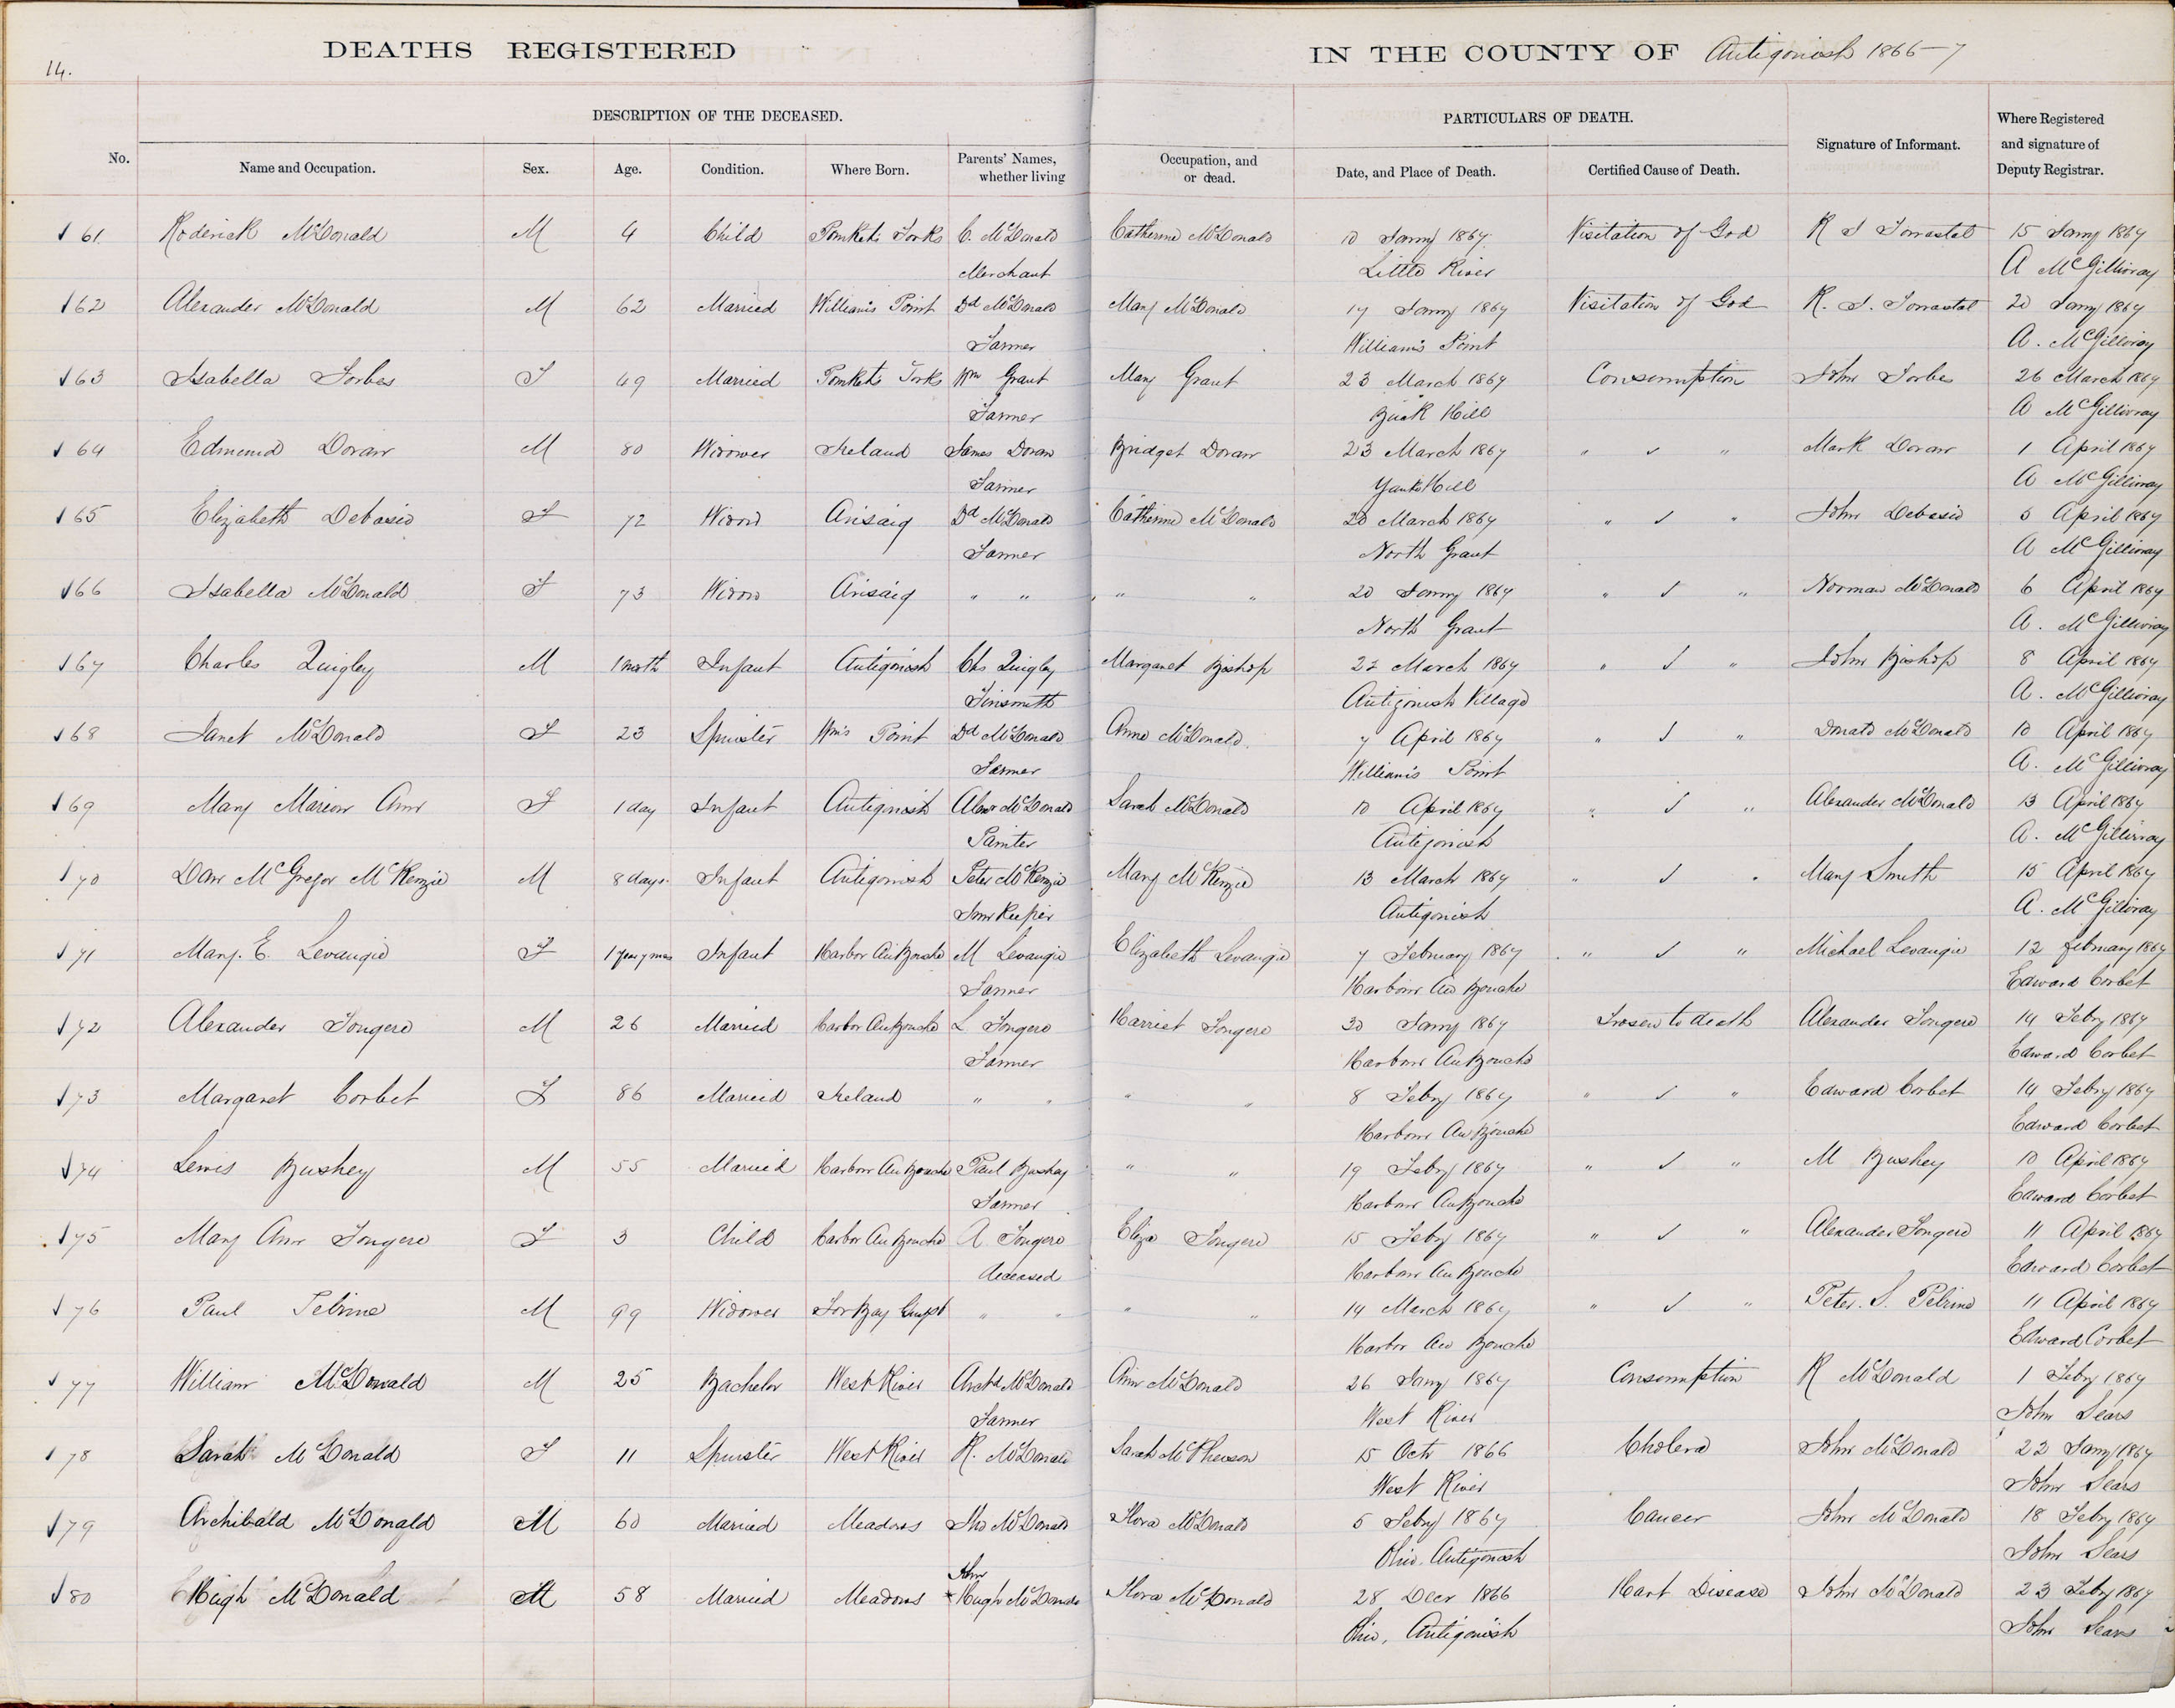 DEATHS REGISTERED IN THE COUNTY OF Antigonish 1866-7
14.
DESCRIPTION OF THE DECEASED. PARTICULARS OF DEATH.
No. Name and Occupation. Sex. Age. Condition. Where Born. Parents' Names, whether living Occupation, and or dead. Date, and Place of Death. Certified Cause of Death. Signature of Informant. Where Registered and signature of Deputy Registrar.
61 Roderick McDonald M 4 Child Pomkets Forks C. McDonald Catherine McDonald 10 Jany 1867 Visitation of God 15 Jany 1867
Merchant Little River A McGillivray
62 Alexander McDonald M 62 Married William's Point Dd McDonald Mary McDonald 17 Jany 1867 Visitation of God 20 Jany 1867
Farmer William's Point A. McGillivray
63 Isabella Forbes F 49 Married Pomkets Forks Wm Grant Mary Grant 23 March 1867 Consumption John Forbes 26 March 1867
Farmer Hill A McGillivray
64 Edmund Doran M 80 Widower Ireland James Doran Bridget Doran 23 March 1867 " ✓ " Mark Doran 1 April 1867
Farmer A McGillivray
65 Elizabeth F 72 Widow Arisaig Dd McDonald Catherine McDonald 20 March 1867 " ✓ " John 5 April 1867
Farmer North Grant A McGillivray
66 Isabella McDonald F 73 Widow Arisaig " " " " 20 Jany 1867 " ✓ " Norman McDonald 6 April 1867
North Grant A. McGillivray
67 Charles Quigley M 1 month Infant Antigonish Chs Quigley Margaret Bishop 22 March 1867 " ✓ " John Bishop 8 April 1867
Tinsmith Antigonish Village A. McGillivray
68 Janet McDonald F 23 Spinster Wm's Point Dd McDonald Anne McDonald. 7 April 1867 " ✓ " Donald McDonald 10 April 1867
Farmer William's Point A. McGillivray
69 Mary Marion Ann F 1 day Infant Antigonish Alexr McDonald Sarah McDonald 10 April 1867 " ✓ " Alexander McDonald 13 April 1867
Painter Antigonish A. McGillivray
70 Dan McGregor McKenzie M 8 days. Infant Antigonish Peter McKenzie Mary McKenzie 13 March 1867 " ✓ " Mary Smith 15 April 1867
Inn Keeper Antigonish A. McGillivray
71 Mary. E. Levangie F 1 year 7 mos Infant Harbor Au Bouche M Levangie Elizabeth Levangie 7 February 1867 " ✓ " Michael Levangie 12 february 1867
Farmer Harbour Au Bouche Edward Corbet
72 Alexander Fougere M 26 Married Harbor Au Bouche L Fougere Harriet Fougere 30 Jany 1867 Frosen to death Alexander Fougere 14 Feby 1867
Farmer Harbour Au Bouche Edward Corbet
73 Margaret Corbet F 86 Married Ireland " " " " 8 Feby 1867 " ✓ " Edward Corbet 14 Feby 1867
Harbour Au Bouche Edward Corbet
74 Lewis Bushey M 55 Married Harbour Au Bouche Paul Bushey " " 19 Feby 1867 " ✓ " M Bushey 10 April 1867
Farmer Harbour Au Bouche Edward Corbet
75 Mary Ann Fougere F 3 Child Harbor Au Bouche A Fougere Eliza Fougere 15 Feby 1867 " ✓ " Alexander Fougere 11 April 1867
deceased Harbour Au Bouche Edward Corbet
76 Paul Petrine M 99 Widower " " " " 14 March 1867 " ✓ " Peter. S. Pelrine 11 April 1867
Harbor Au Bouche Edward Corbet
77 William McDonald M 25 Bachelor West River Archd McDonald Ann McDonald 26 Jany 1867 Consumption R McDonald 1 Feby 1867
Farmer West River John Sears
78 Sarah McDonald F 11 Spinster West River R. McDonald Sarah McPherson 15 Octr 1866 Cholera John McDonald 22 Jany 1867
West River John Sears
79 Archibald McDonald M 60 Married Meadows Jno McDonald Flora McDonald 5 Feby 1867 Cancer John McDonald 18 Feby 1867
Ohio. Antigonish John Sears
John
80 Hugh McDonald M 58 Married Meadows *Hugh McDonald Flora McDonald 28 Decr 1866 Hart Disease John McDonald 23 Feby 1867
Ohio, Antigonish John Sears